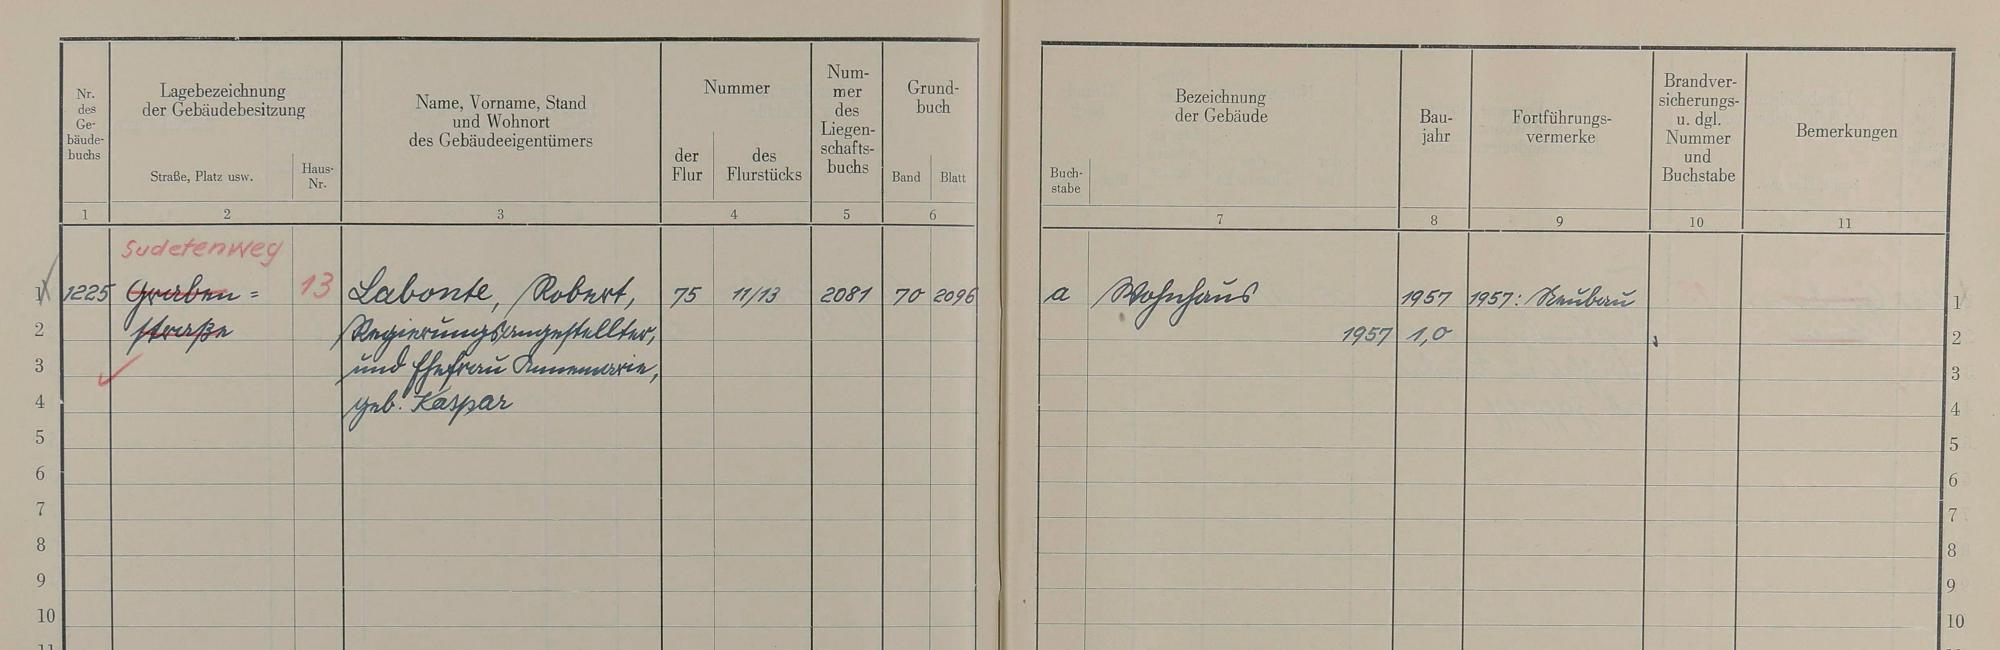 Nr.
des
Ge-
bäude-
buchs
Lagebezeichnung
der Gebäudebesitzung
Straße, Platz usw.
Haus-
Nr.
Name, Vorname, Stand
und Wohnort
des Gebäudeeigentümers
Nummer
der
Flur
des
Flurstücks
Num-
mer
des
Liegen-
schafts-
buchs
Grund-
buch
Band
Blatt
1 2 3 4 5 6
Sudetenweg
1 1225 Graben= 13 Labonte, Robert, 75 11/13 2081 70 2096
2 straße Regierungsangestellter,
3 und Ehefrau Annemarie,
4 geb. Kaspar
5
6
7
8
9
10
11
Bezeichnung
der Gebäude
Buch-
stabe
Bau-
jahr
Fortführungs-
vermerke
Brandver-
sicherungs-
u. dgl.
Nummer
und
Buchstabe
Bemerkungen
7 8 9 10 11
a Wohnhaus 1957 1957: Neubau 1
1957 1,0 2
3
4
5
6
7
8
9
10